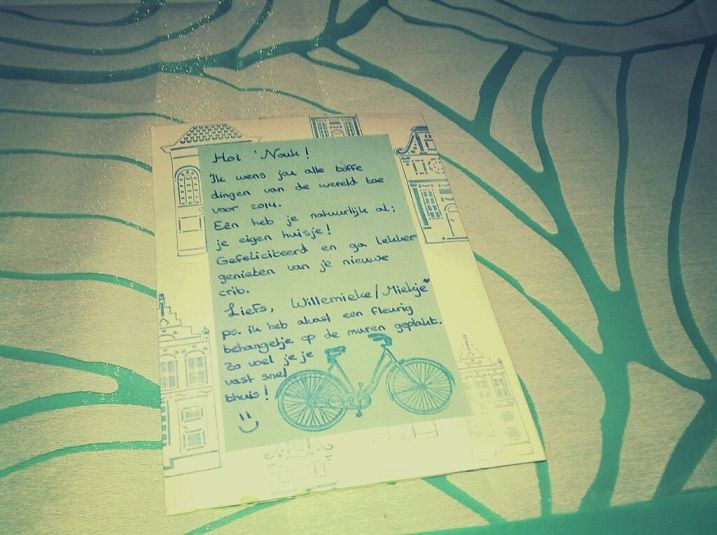 Hoi 'Nouk!
Ik wens jou alle toffe
dingen van de wereld toe
voor 2014.
Eén heb je natuurlijk al:
je eigen huisje!
Gefeliciteerd en ga lekker
genieten van je nieuwe
crib.
Liefs, Willemieke/Miekje
ps. ik heb alvast een fleurig
behangetje op de muren geplakt.
Zo voel je je
vast snel
thuis!